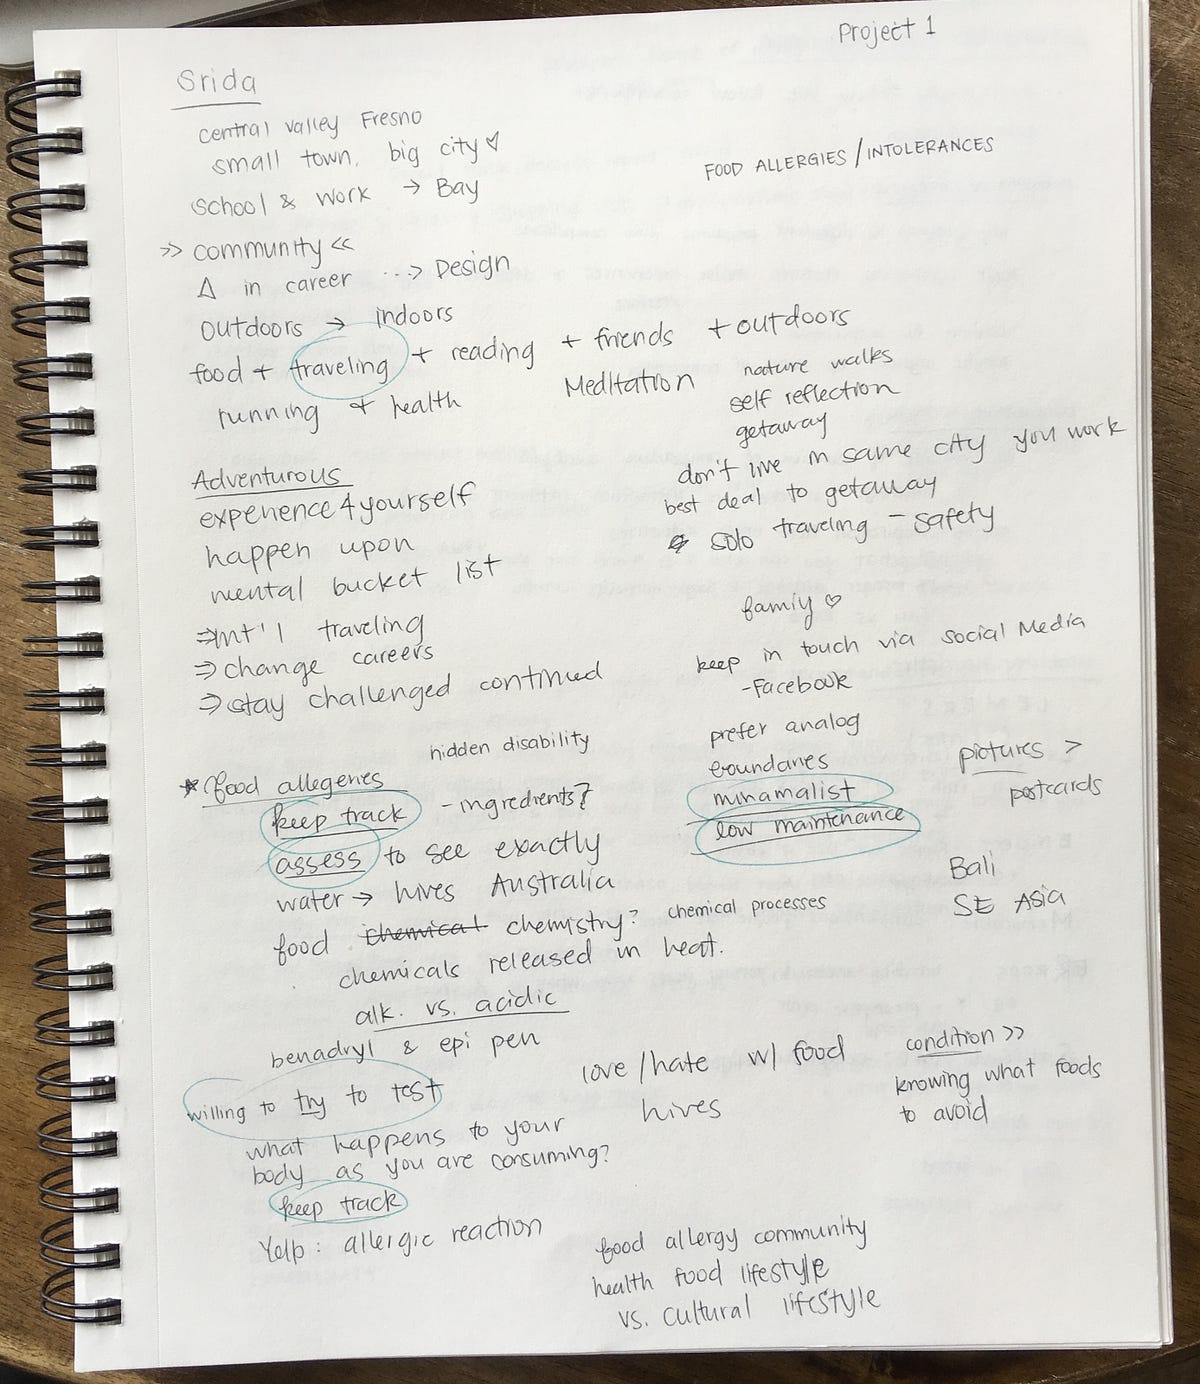 Project 1
Srida
central valley Fresno
small town, big city
School & work → Bay
FOOD ALLERGIES/INTOLERANCES
>> community <<
Δ in career ---> Design
outdoors → indoors
food + traveling + reading + friends + outdoors
running + health
Meditation
nature walks
self reflection
getaway
don't live in same city you work
best deal to getaway
solo traveling - safety
Adventurous
experience 4 yourself
happen upon
mental bucket list
⇒ int'l traveling
⇒ change careers
⇒ stay challenged continued
famiy ♡
keep in touch via social Media
-Facebook
prefer analog
boundaries
minamalist
low maintenance
pictures >
postcards
Bali
SE Asia
hidden disability
* food allegeries
keep track - ingredients?
assess to see exactly
water → hives Australia
food chemical chemistry? chemical processes
chemicals released in heat.
alk. vs. acidic
benadryl & epi pen
willing to try to test
what happens to your
body as you are consuming?
keep track
Yelp: allergic reaction
love/hate w/ food
hives
condition >>
knowing what foods
to avoid
food allergy community
health food lifestyle
vs. cultural lifestyle